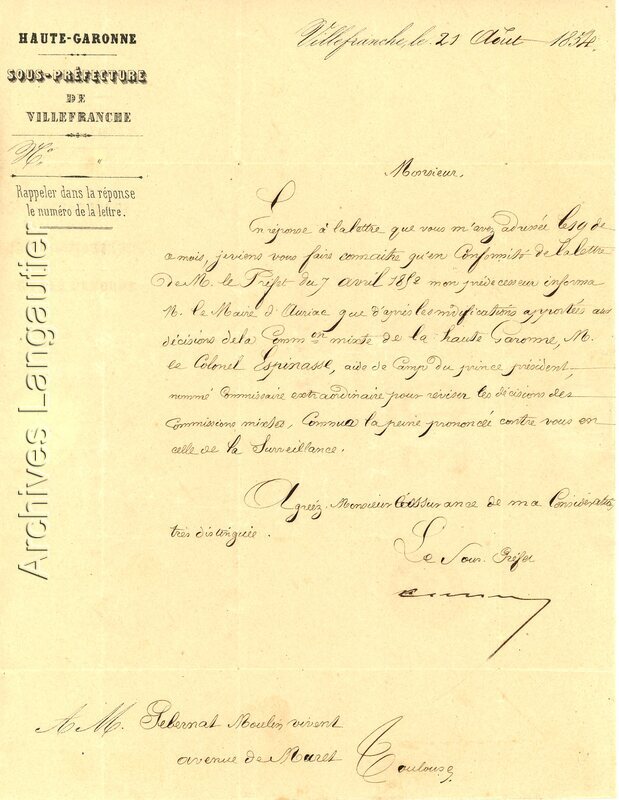 HAUTE-GARONNE
SOUS-PRÉFECTURE
DE
VILLEFRANCHE
N.º "
Rappeler dans la réponse
le numéro de la lettre.
Villefranche, le 21 Août 1854.
Monsieur.
En réponse à la lettre que vous m'avez adressée le 19 de
ce mois, je viens vous faire connaitre qu'en Conformité de la lettre
de M. le Préfet du 7 avril 1852 mon prédecesseur informa
M. le Maire d'Auriac que d'après les modifications apportées aux
décisions de la Comm.on mixte de la haute Garonne, M.
le Colonel Espinasse, aide de Camp du prince président,
nommé Commissaire extraordinaire pour réviser les décisions des
Commissions mixtes, Commua la peine prononcée contre vous en
celle de la Surveillance.
Agréez, Monsieur l'assurance de ma Considération
très distinguée.
Le Sous-Préfet
A M. Pebernat Moulin vivent
avenue de Muret Toulouse
Archives Langautier